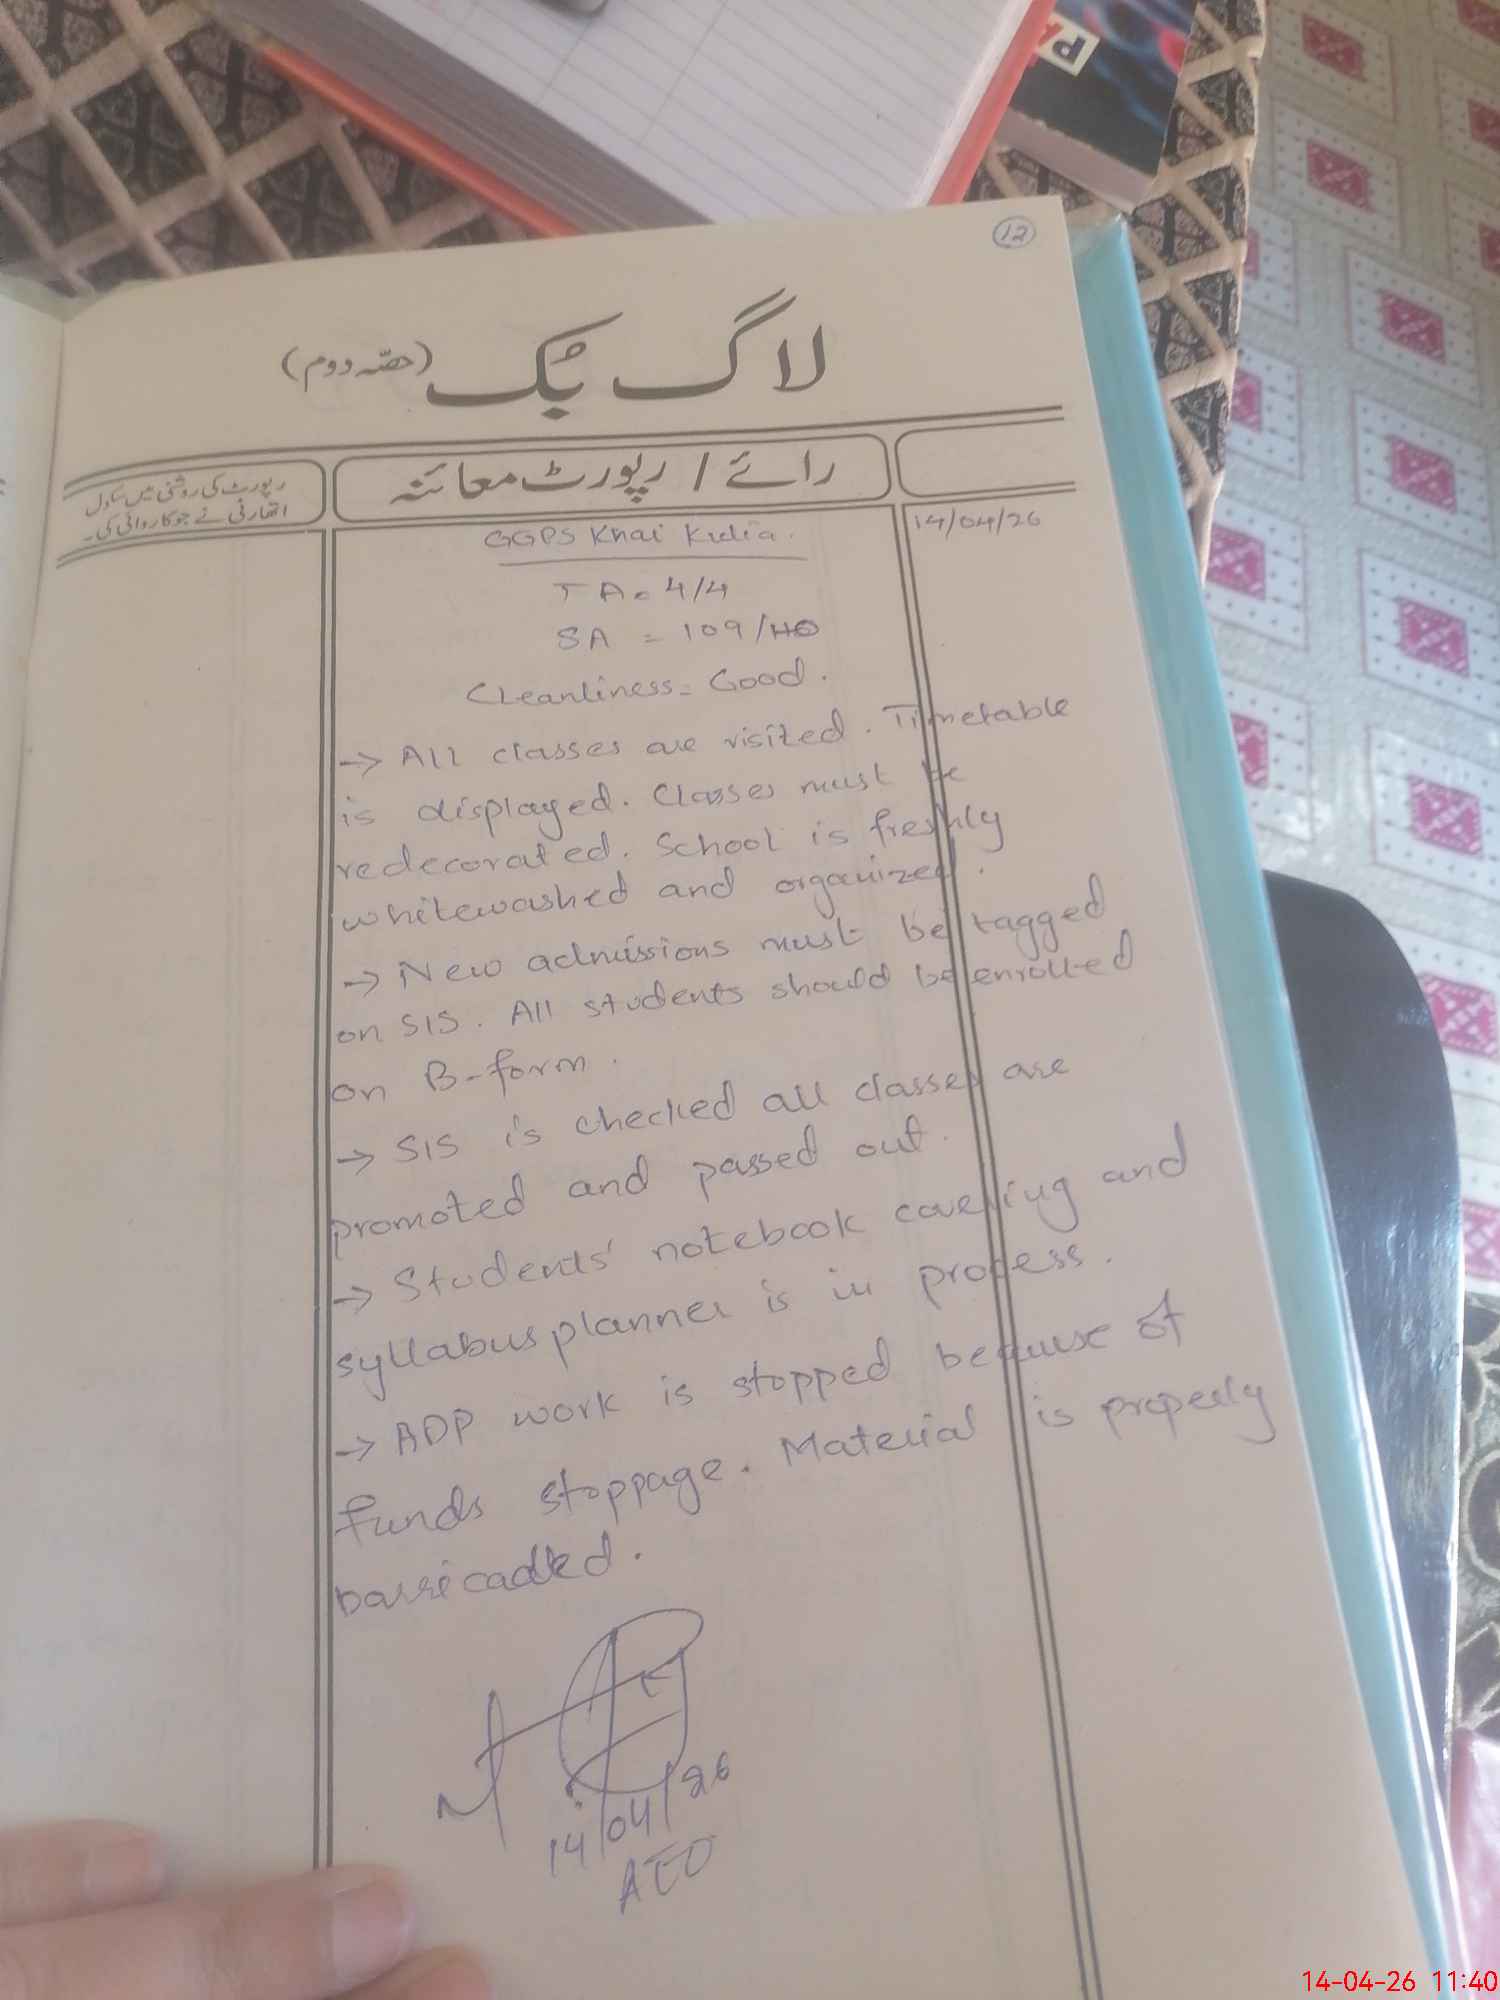 PA
12
لاگ بُک (حصّہ دوم)
رائے / رپورٹ معائنہ
رپورٹ کی روشنی میں سکول
اتھارٹی نے جو کاروائی کی۔
14/04/26
GGPS Khai Kulia.
TA = 4/4
SA = 109/110
Cleanliness = Good.
→ All classes are visited. Timetable
is displayed. Classes must be
redecorated. School is freshly
whitewashed and organized.
→ New admissions must be tagged
on SIS. All students should be enrolled
on B-form.
→ SIS is checked all classes are
promoted and passed out.
→ Students' notebook covering and
syllabus planner is in process.
→ ADP work is stopped because of
funds stoppage. Material is properly
barricadded.
14/04/26
AEO
14-04-26 11:40